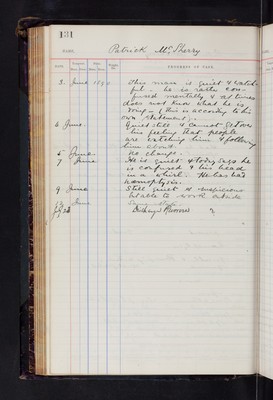 131
NAME, Patrick McSherry
DATE. PROGRESS OF CASE.
3 June 1890 This man is quiet & watch-
ful. he is rather con-
fused mentally & at times
does not know what he is
doing - this is according to his
own statement.
4 June Quiet still & cannot get over
his feeling that people
are watching him & following
him about.
5 June No change.
7 June He is quiet & today says he
is confused & his head
in a whirl. He has had
haemoptysis.
9 June Still quiet & suspicious
12 June